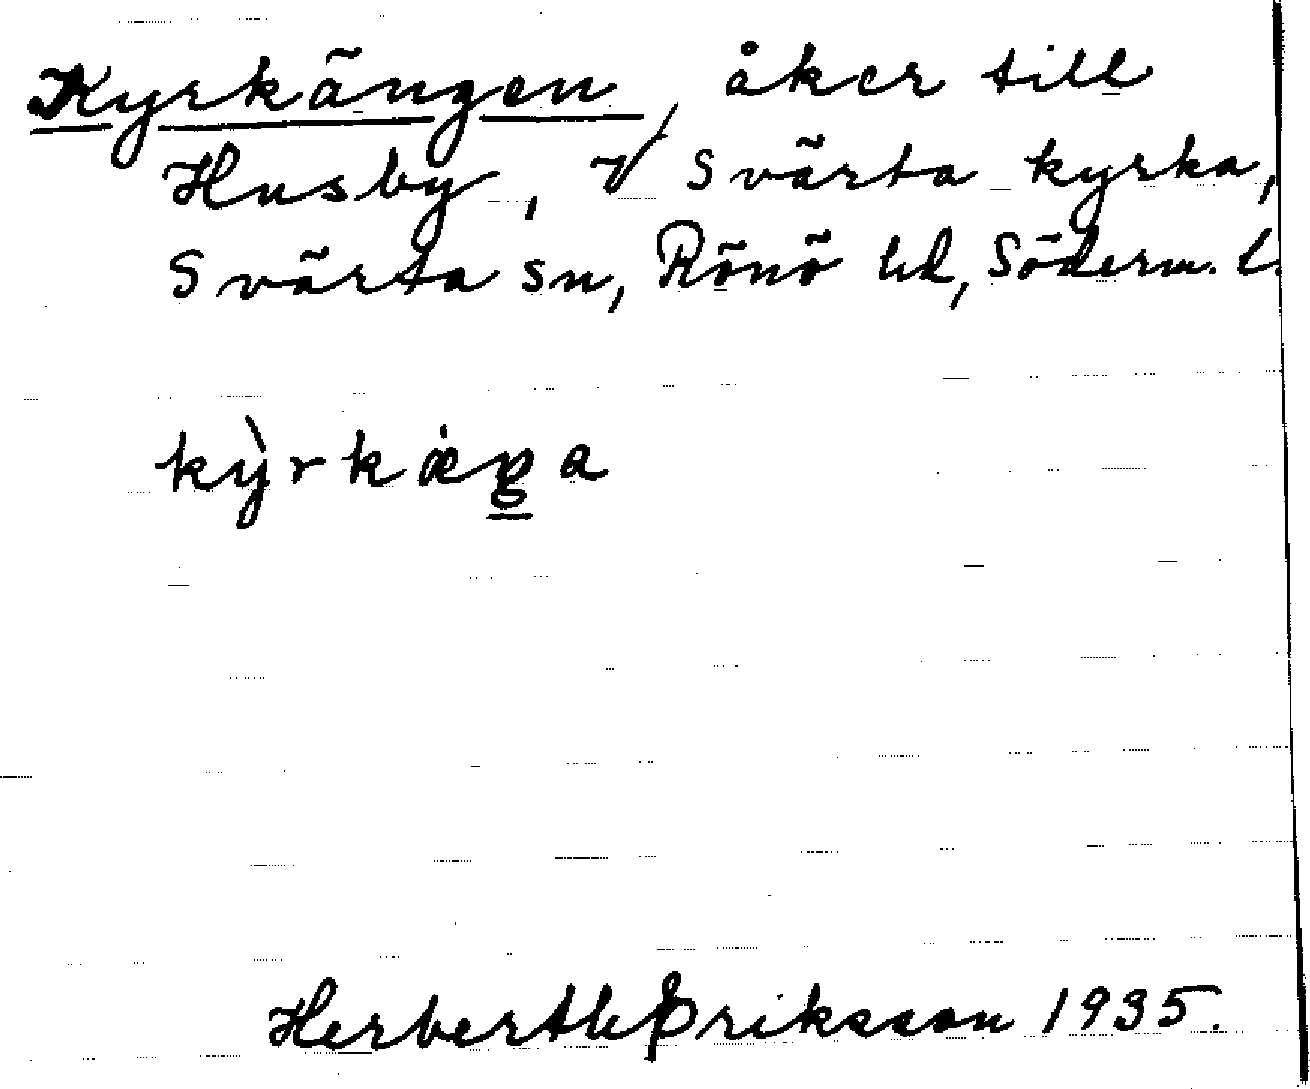 Kyrkängen, åker till
Husby, V Svärta kyrka,
Svärta sn, Rönö hd, Söderm. l.
kỳrkæ̀ŋa
Herbert Eriksson 1935.